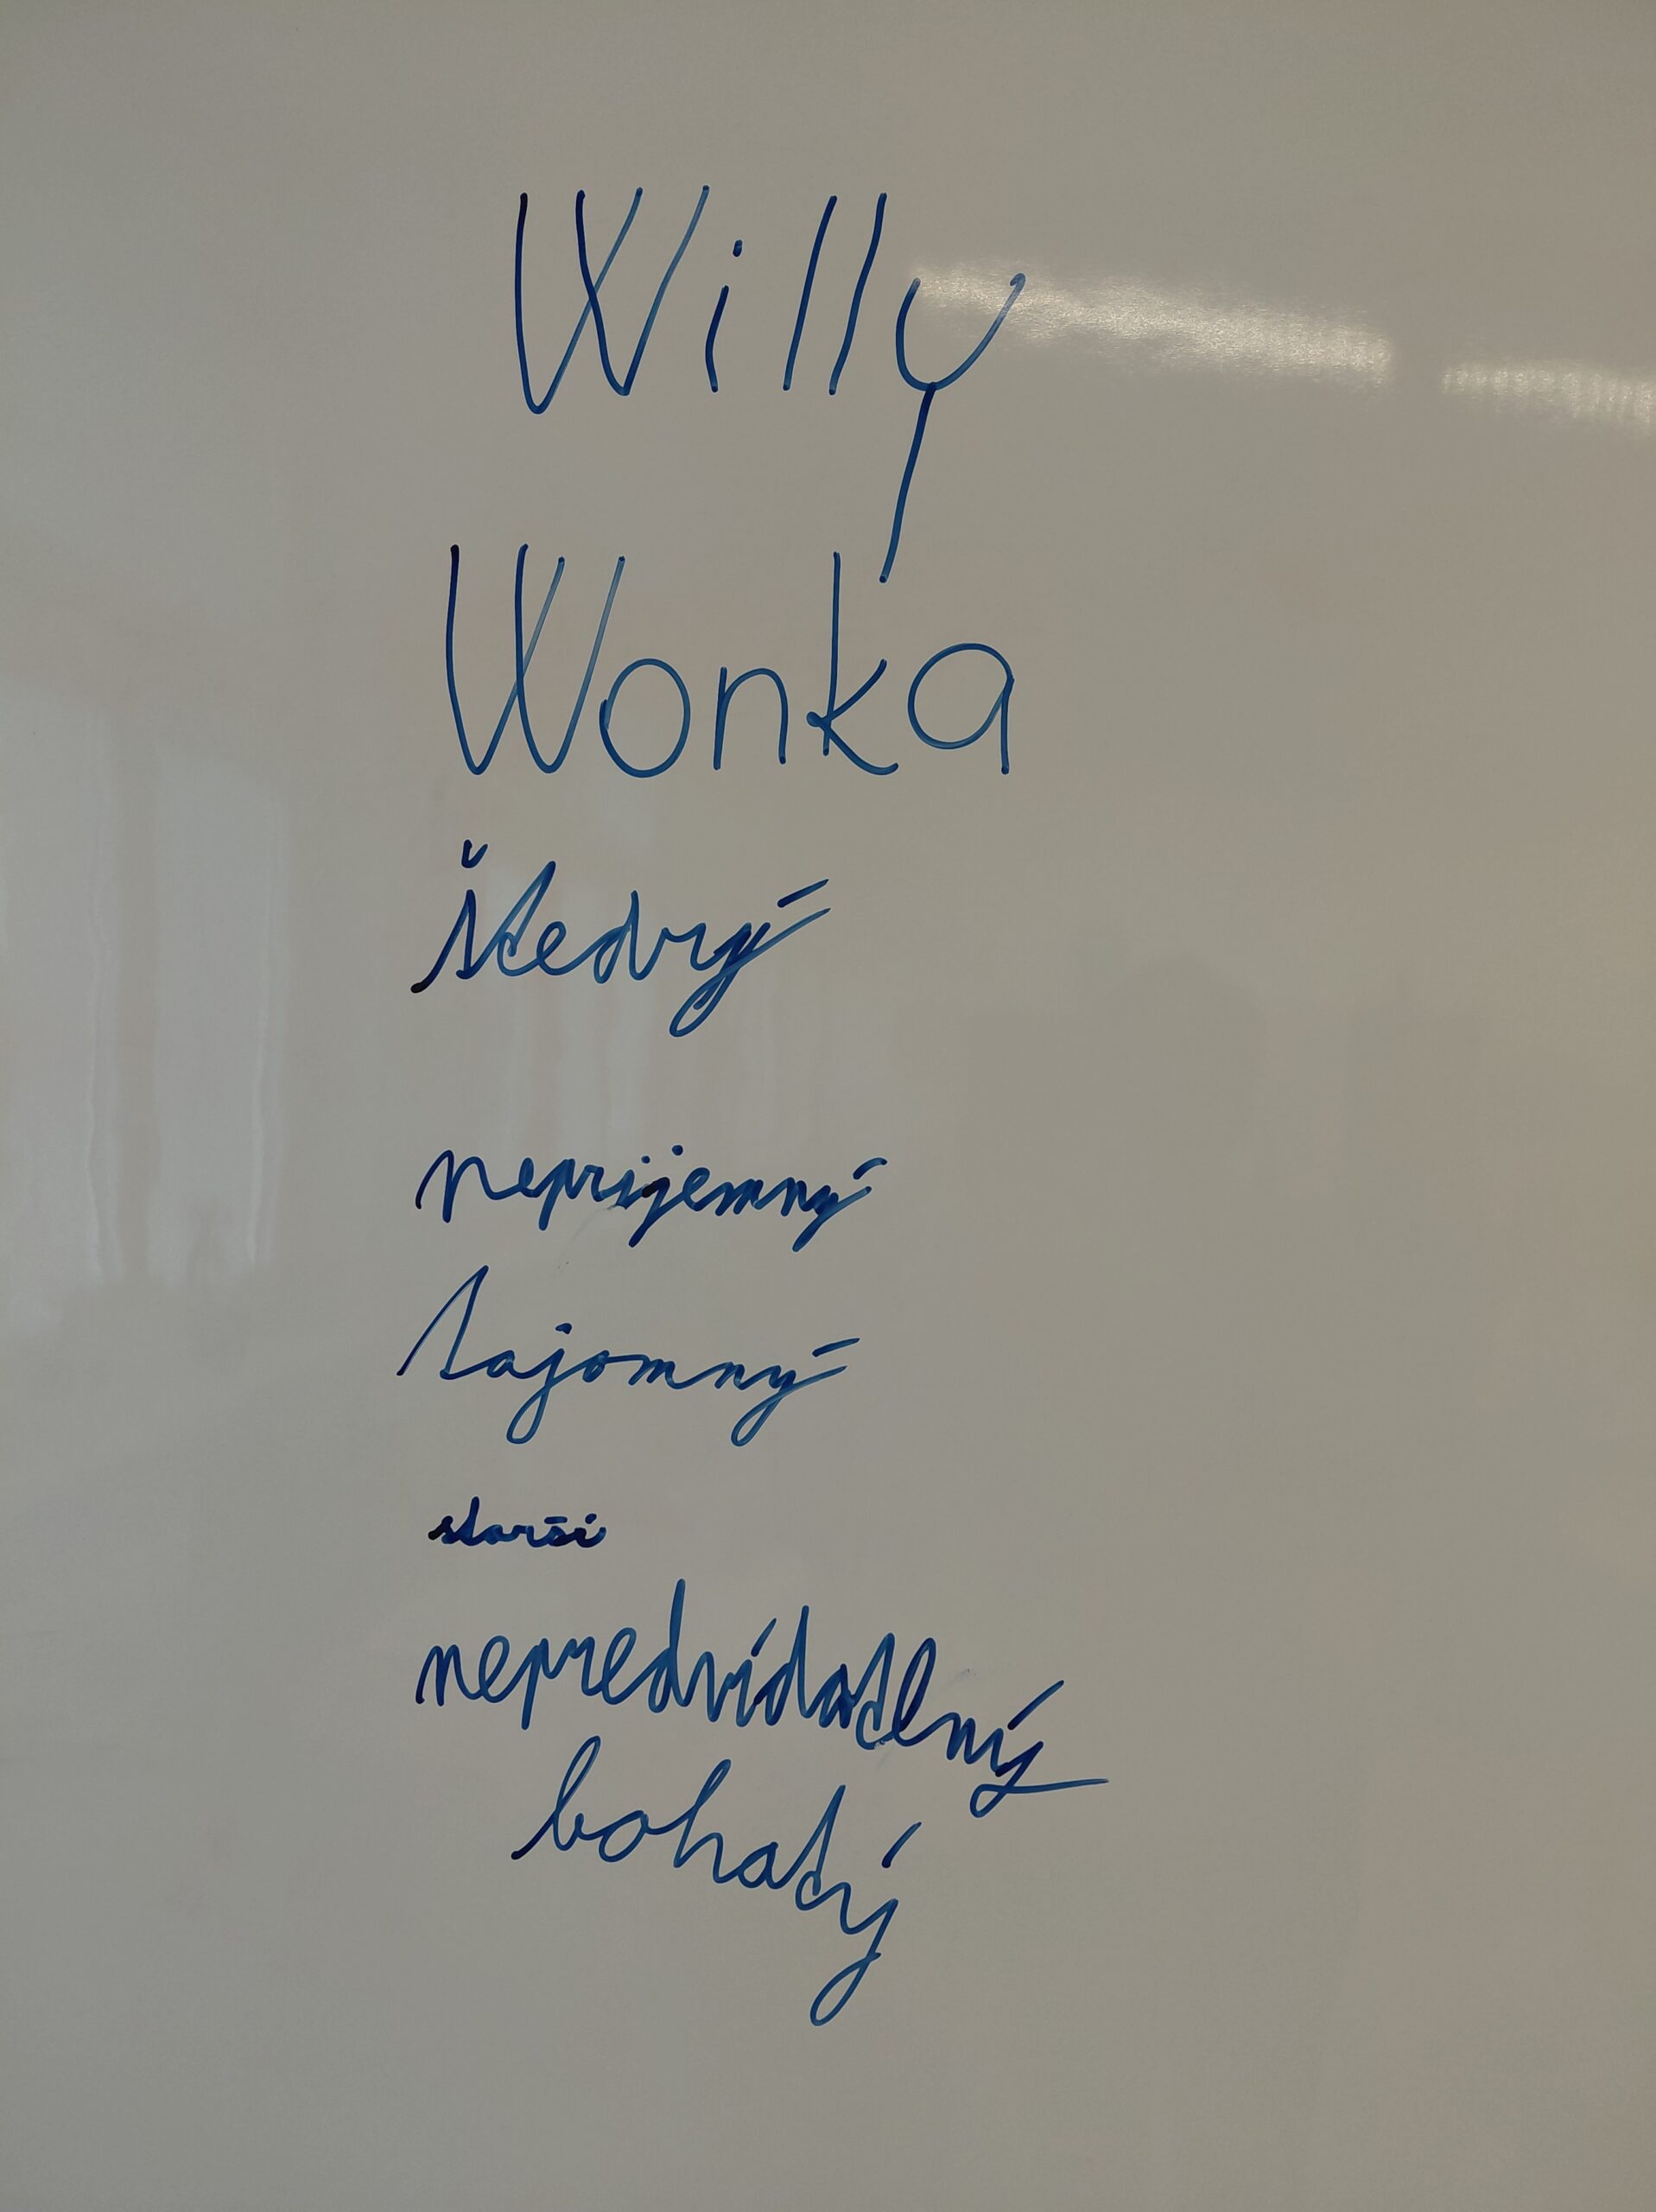 Willy
Wonka
štedrý
neprijemný
tajomný
starší
nepredvídatelný
bohatý